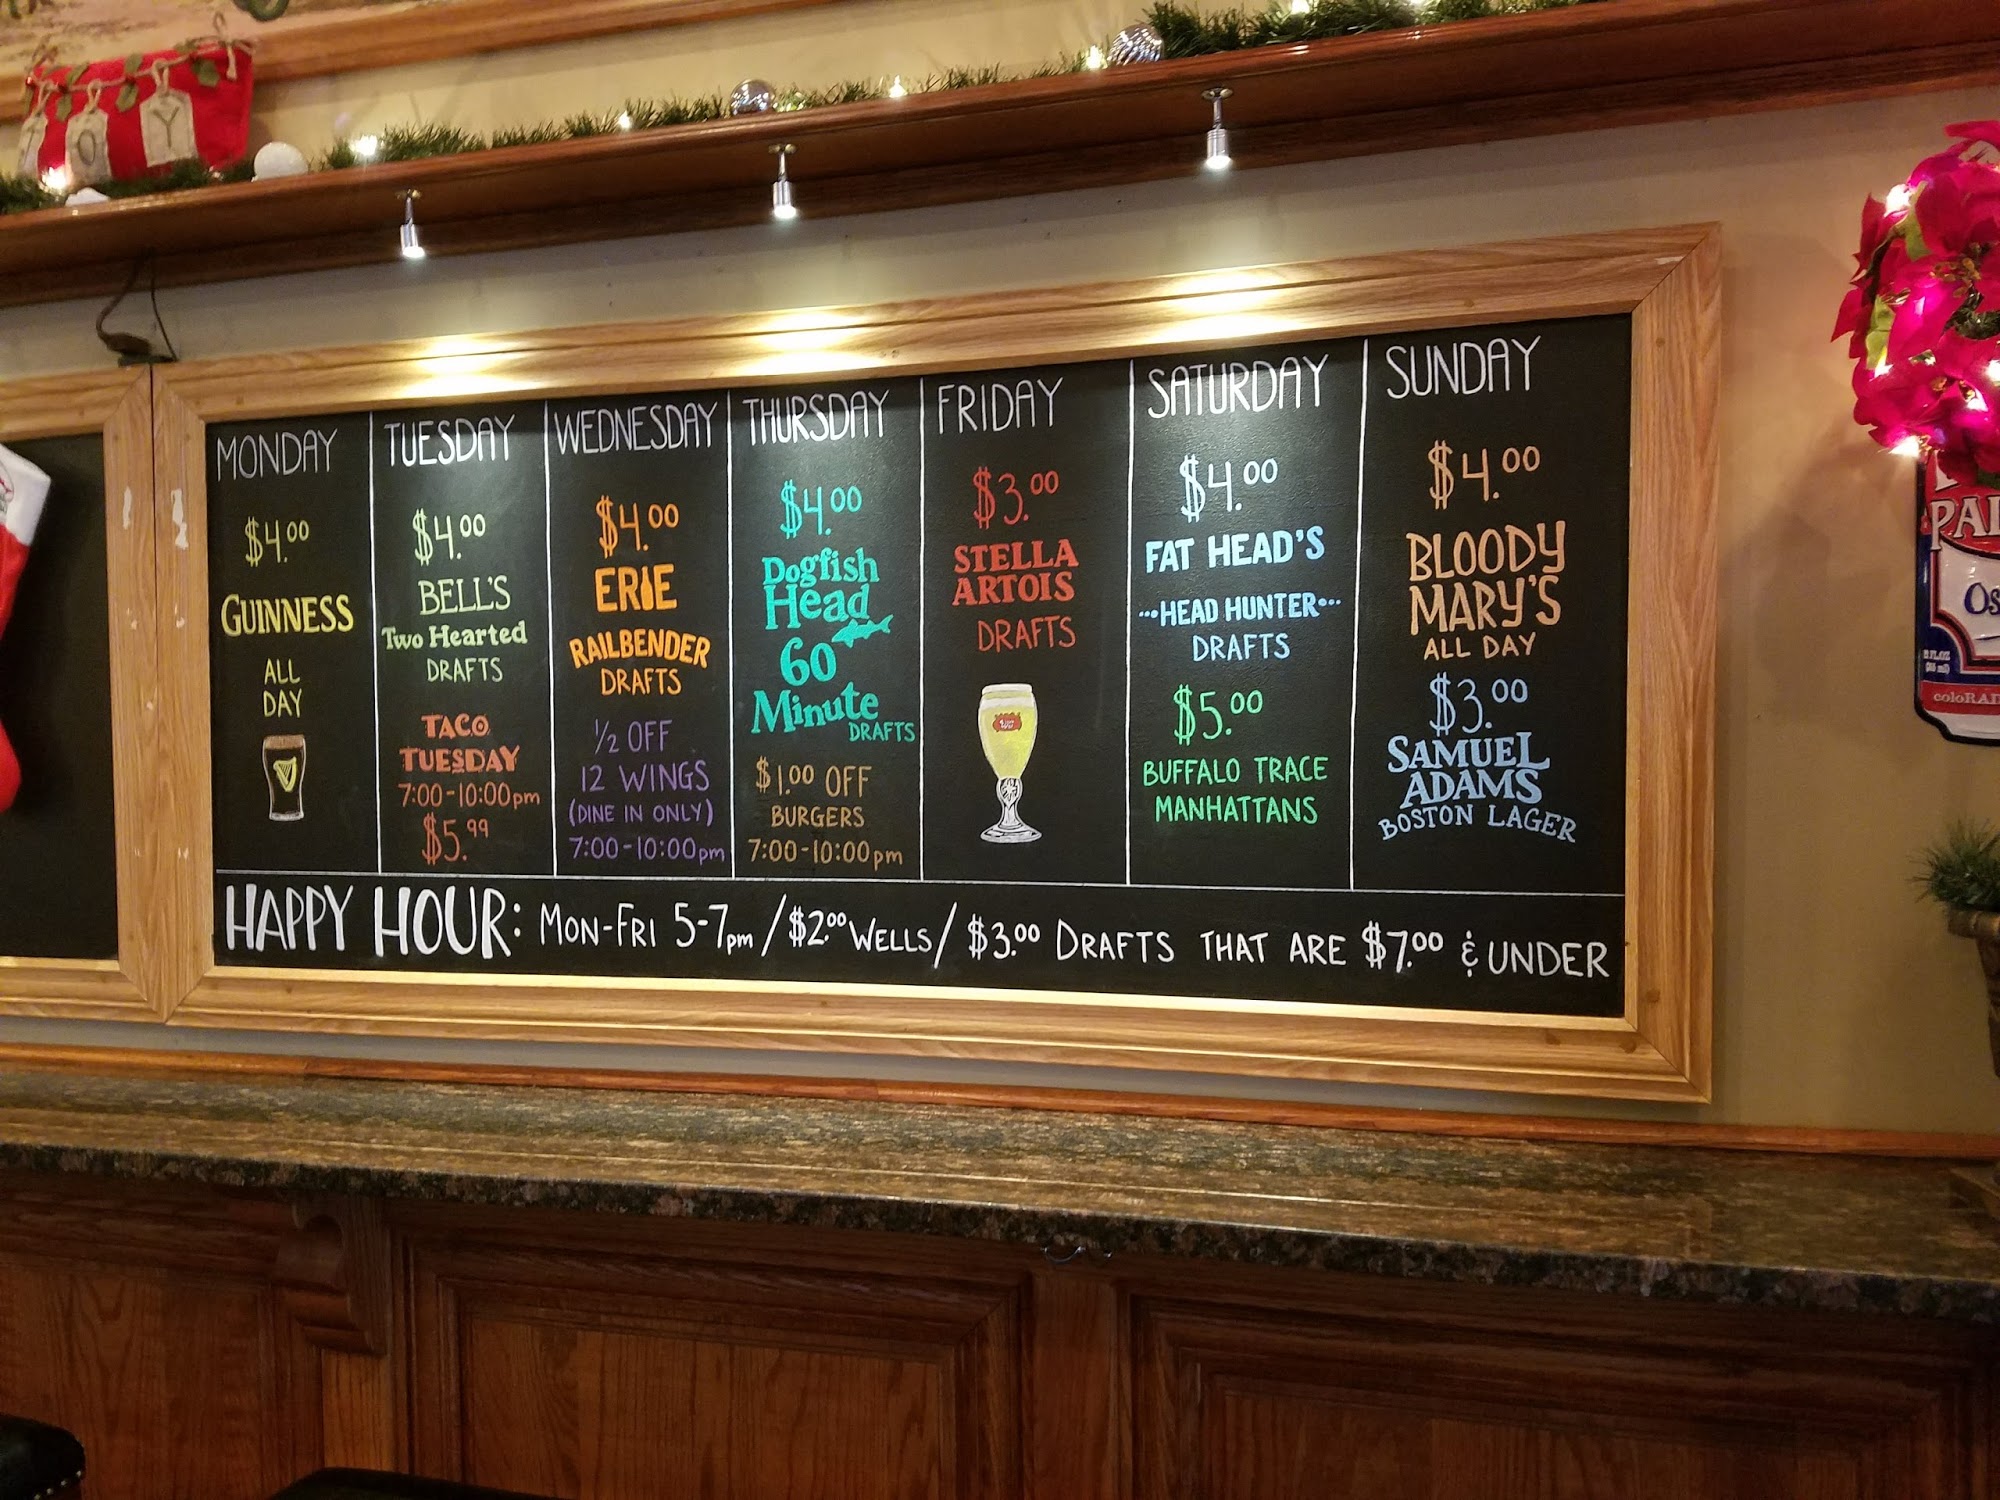 JOY
MONDAY
$4.00
GUINNESS
ALL
DAY
TUESDAY
$4.00
BELL'S
Two Hearted
DRAFTS
TACO
TUESDAY
7:00-10:00pm
$5.99
WEDNESDAY
$4.00
ERIE
RAILBENDER
DRAFTS
1/2 OFF
12 WINGS
(DINE IN ONLY)
7:00-10:00pm
THURSDAY
$4.00
Dogfish
Head
60
Minute
DRAFTS
$1.00 OFF
BURGERS
7:00-10:00pm
FRIDAY
$3.00
STELLA
ARTOIS
DRAFTS
SATURDAY
$4.00
FAT HEAD'S
...HEAD HUNTER...
DRAFTS
$5.00
BUFFALO TRACE
MANHATTANS
SUNDAY
$4.00
BLOODY
MARY'S
ALL DAY
$3.00
SAMUEL
ADAMS
BOSTON LAGER
HAPPY HOUR: MON-FRI 5-7pm / $2.00 WELLS / $3.00 DRAFTS THAT ARE $7.00 & UNDER